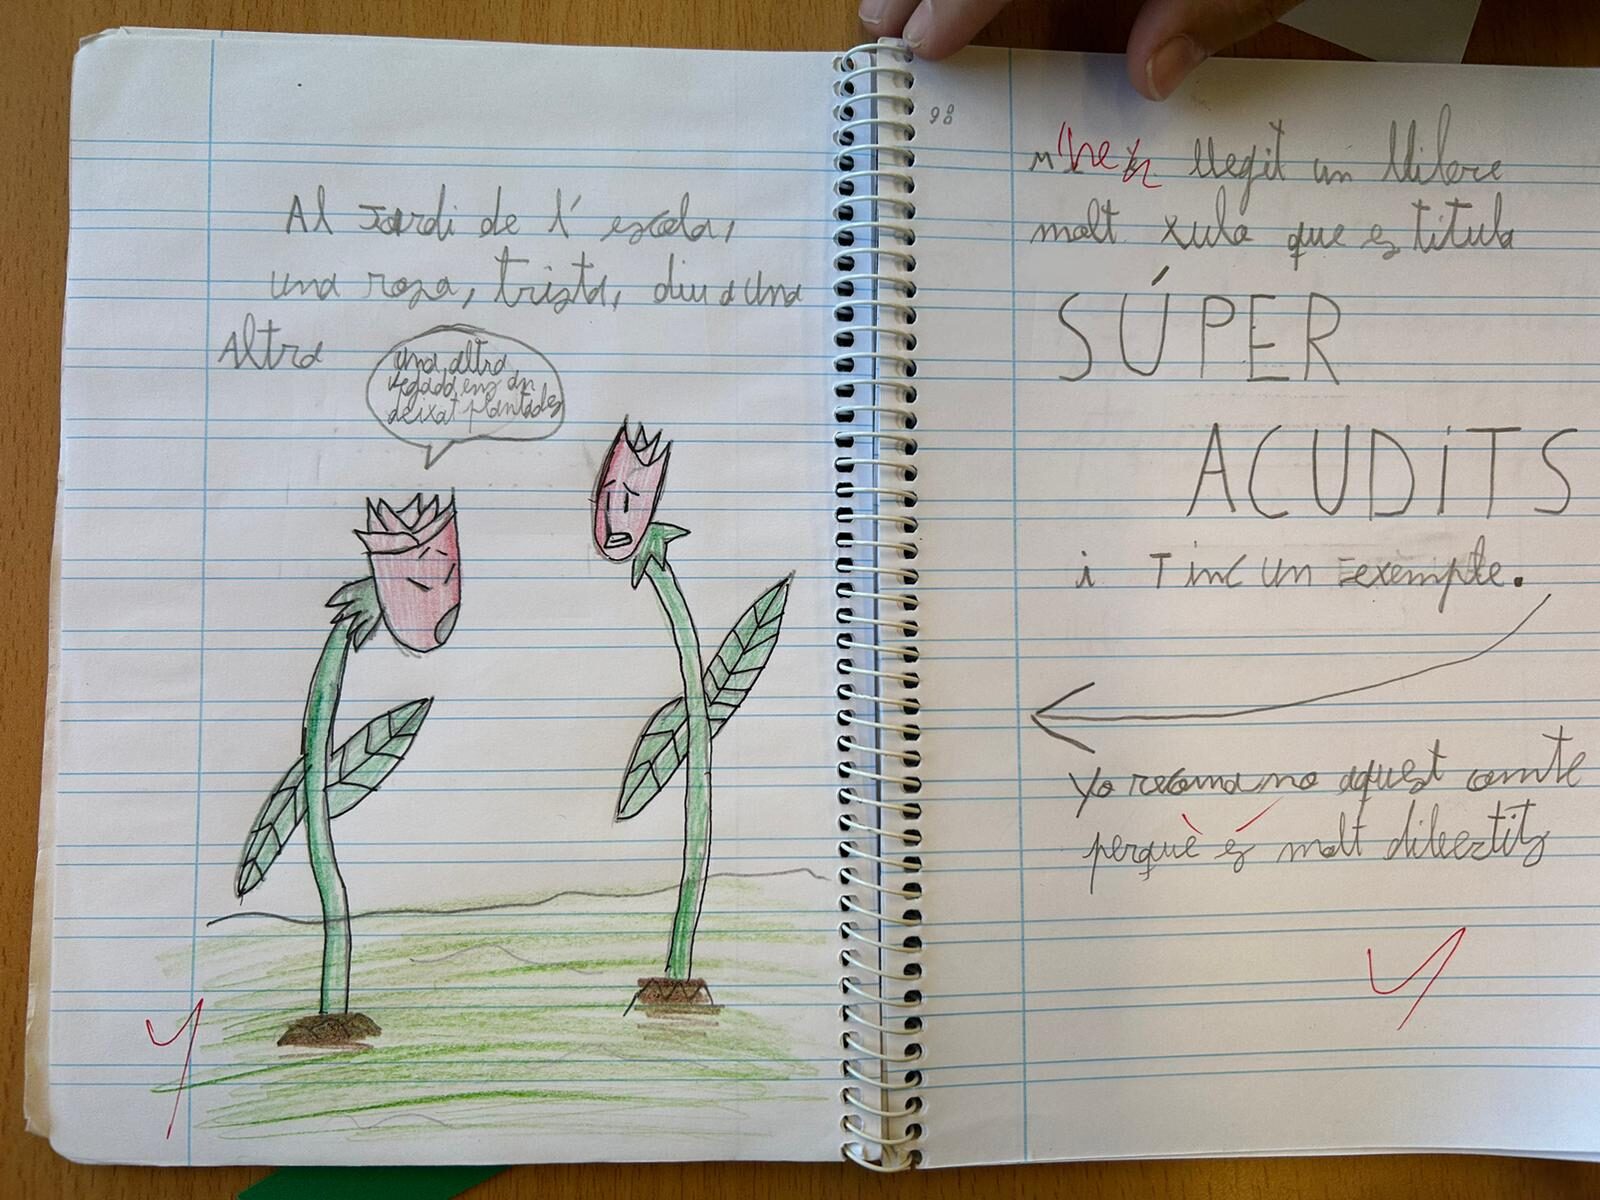 Al Jardi de l'escola,
una rosa, trista, diu a una
Altra
una altra
vegada ens an
deixat plantades
98
n'he llegit un llibre
molt xulo que es titula
SÚPER
ACUDiTS
i Tinc un exemple.
Yo recomano aquest comte
perquè és molt dibertits